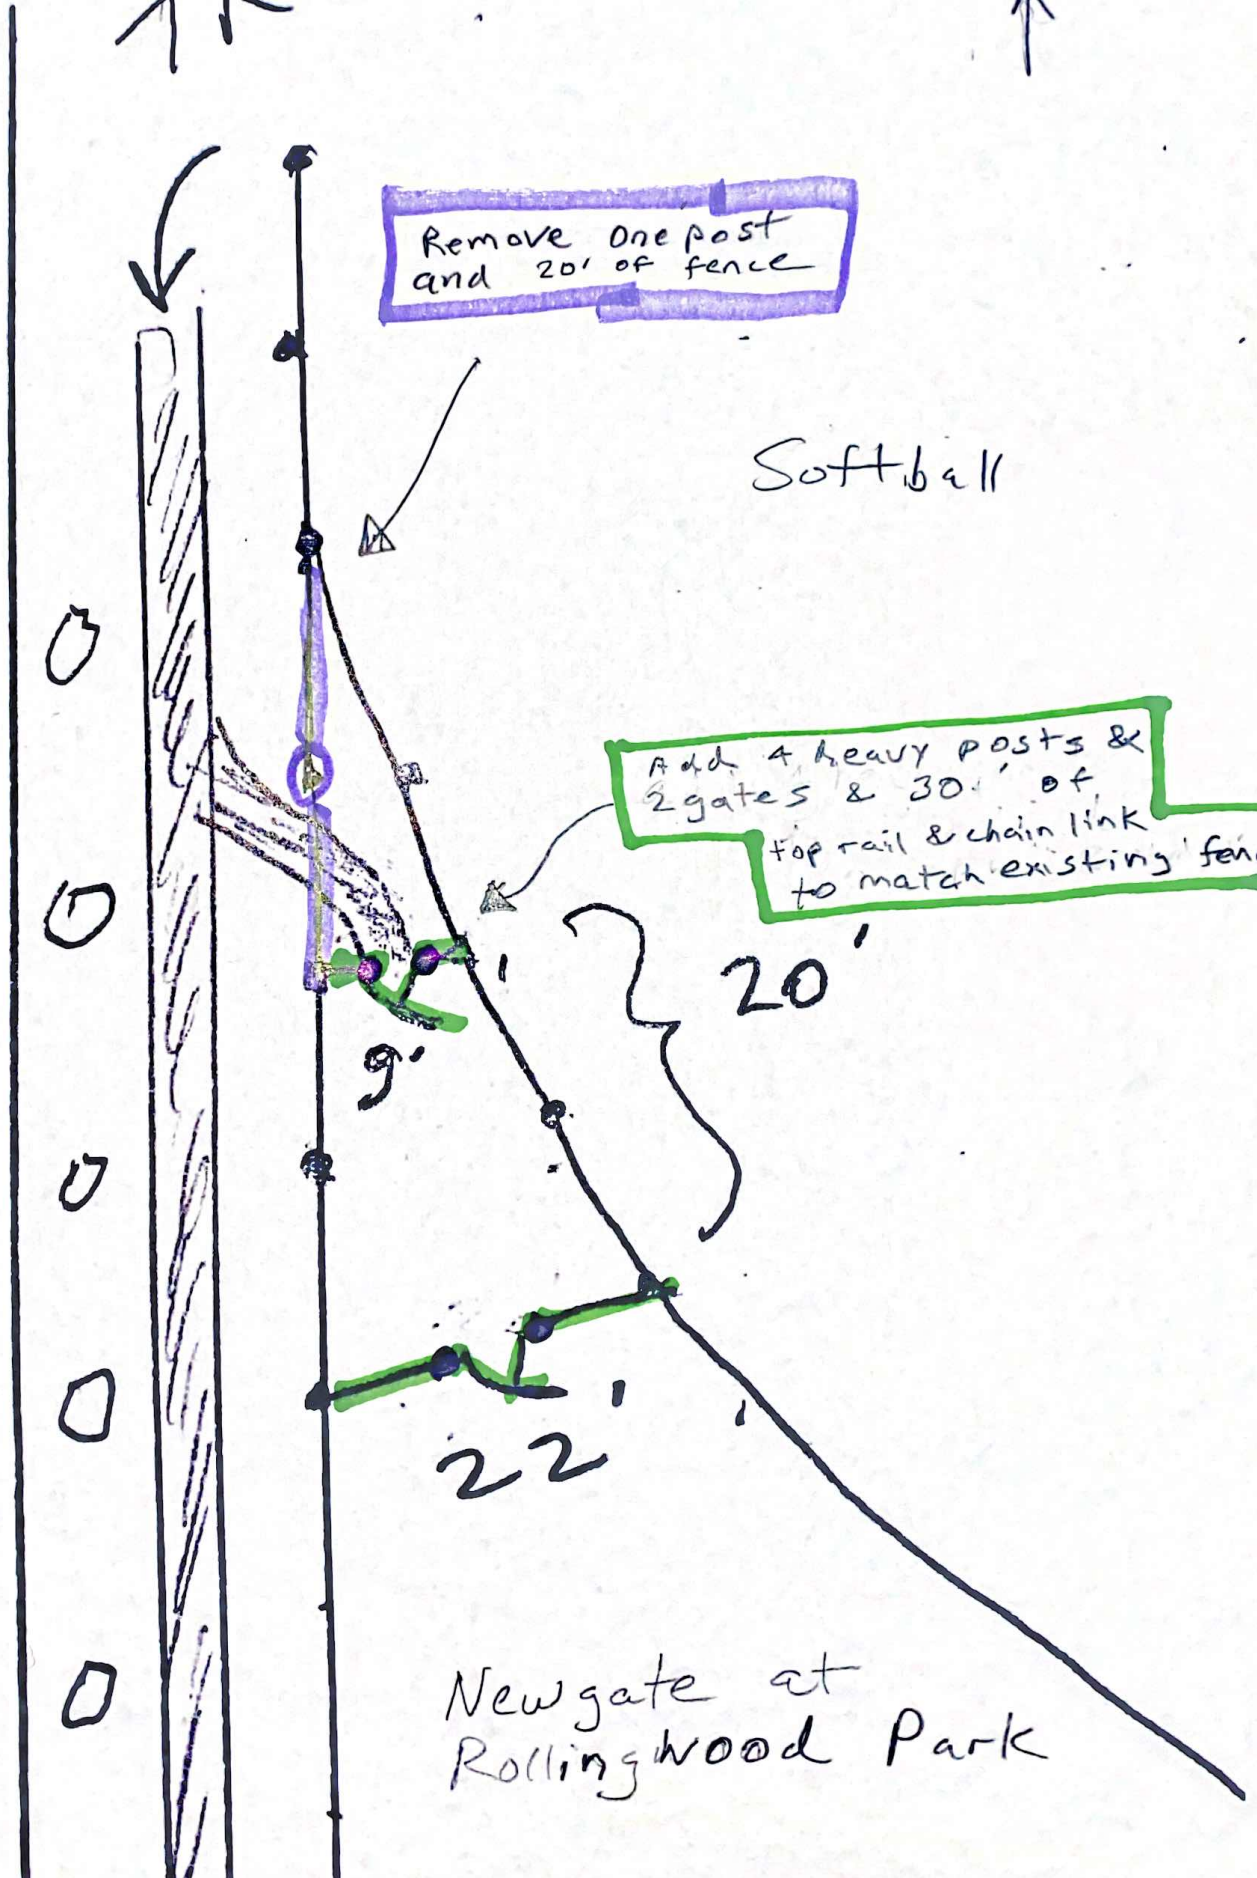 Remove one post
and 20' of fence
Softball
Add 4 heavy posts &
2 gates & 30' of
top rail & chain link
to match existing fen
20'
9'
22'
New gate at
Rollingwood Park